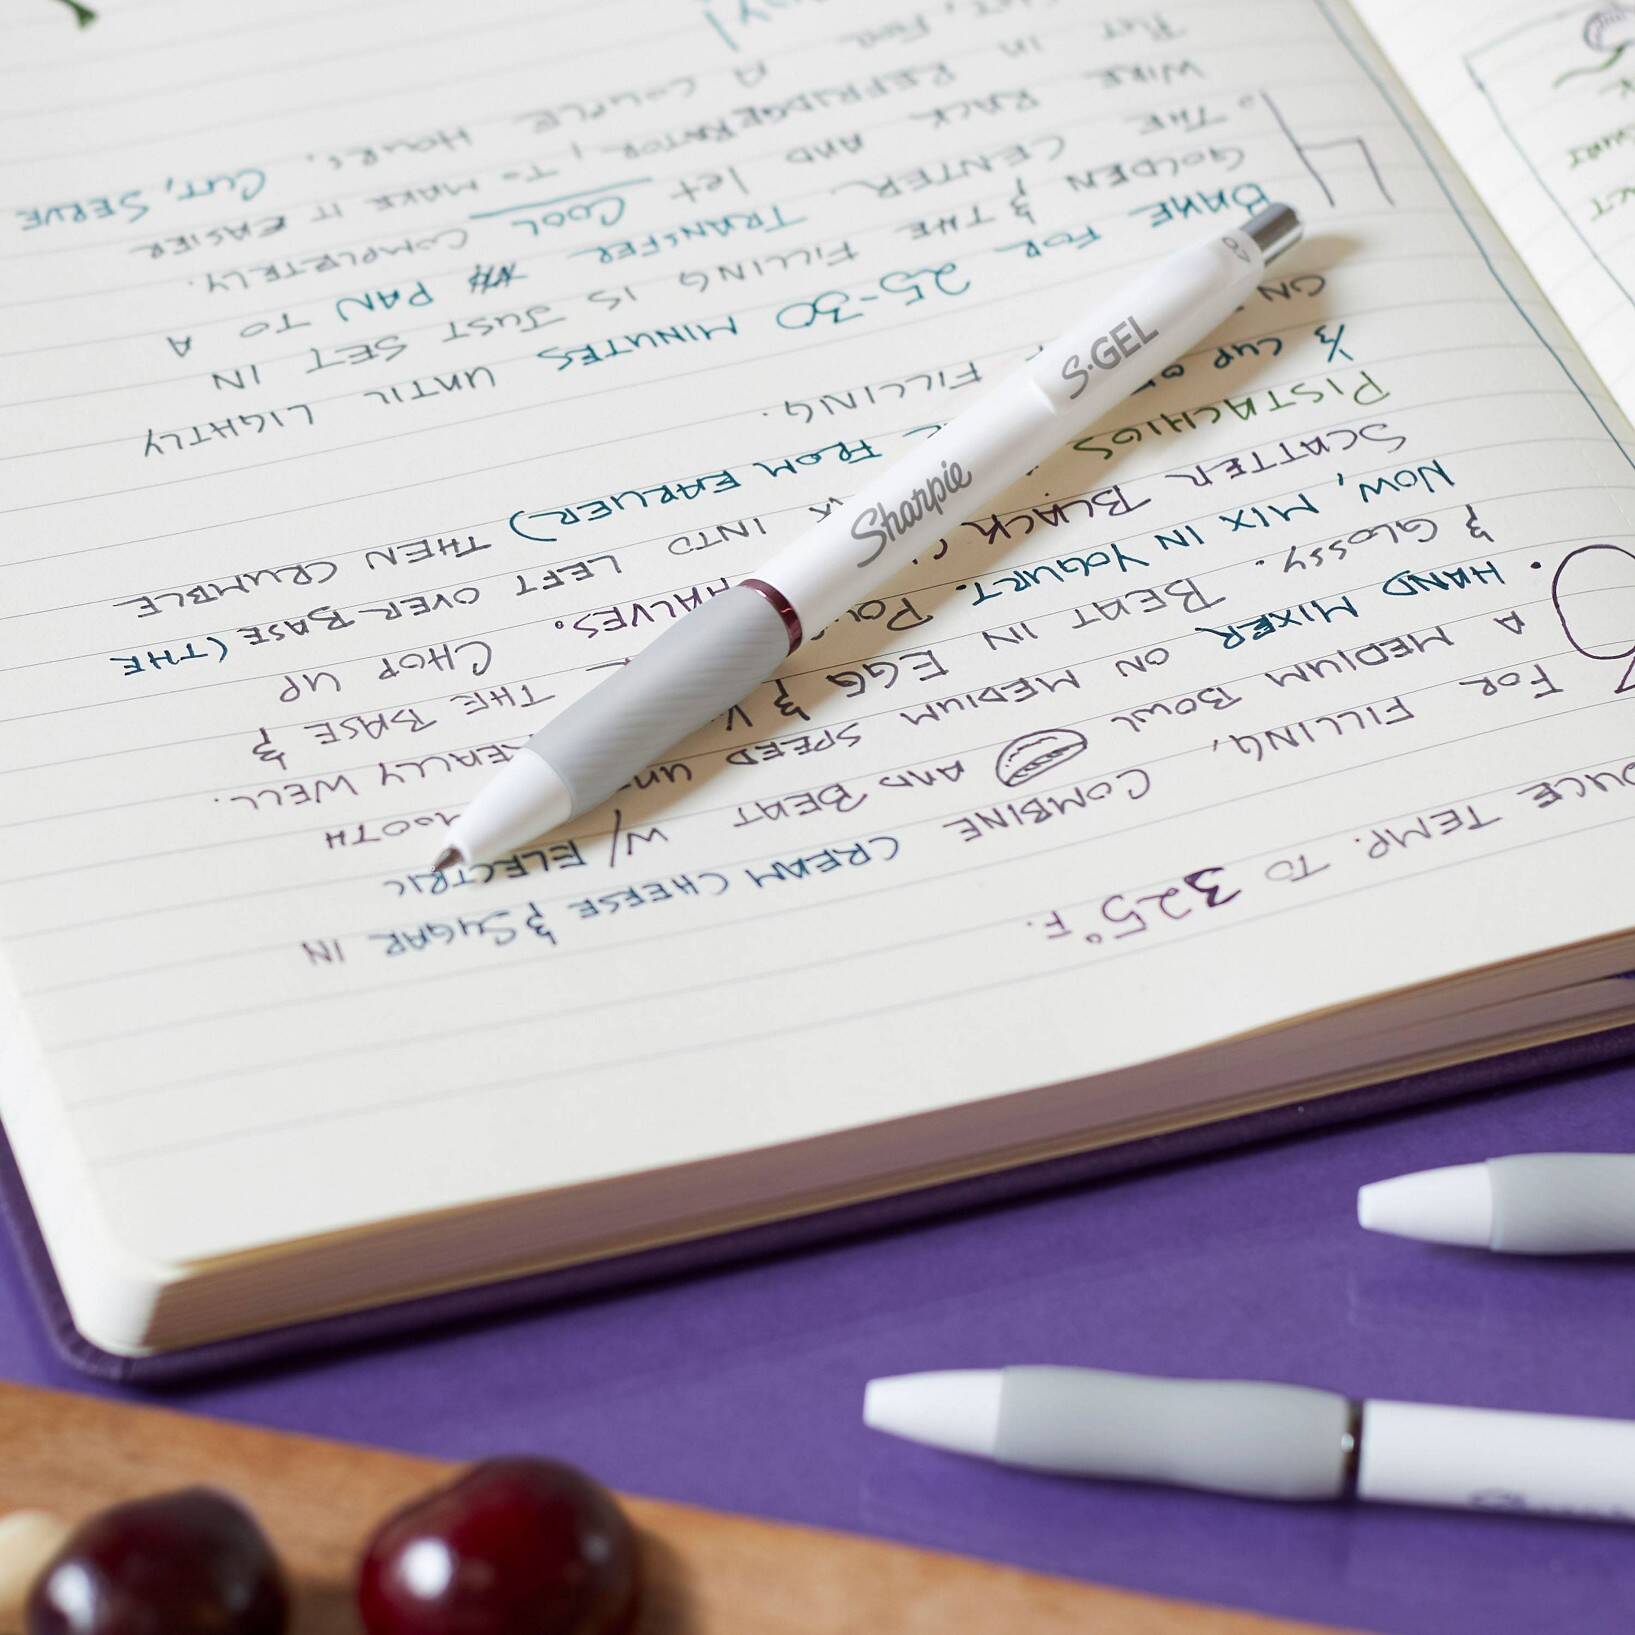 TEMP. TO 325°F.
3
FOR FILLING, COMBINE CREAM CHEESE & SUGAR IN
A MEDIUM BOWL AND BEAT W/ ELECTRIC
HAND MIXER ON MEDIUM SPEED
& GLOSSY. BEAT IN EGG & REALLY WELL.
NOW, MIX IN YOGURT. THE BASE &
SCATTER BLACK HALVES. CHOP UP
PISTACHIOS INTO LEFT OVER BASE (THE
⅓ CUP OF FROM EARLIER) THEN CRUMBLE
ON FILLING.
4
BAKE FOR 25-30 MINUTES UNTIL LIGHTLY
GOLDEN & THE FILLING IS JUST SET IN
THE CENTER. TRANSFER PAN TO A
WIRE RACK AND let COOL COMPLETELY.
PUT IN REFRIDGERATOR, TO MAKE IT EASIER
A COUPLE HOURS. CUT, SERVE
Sharpie S·GEL